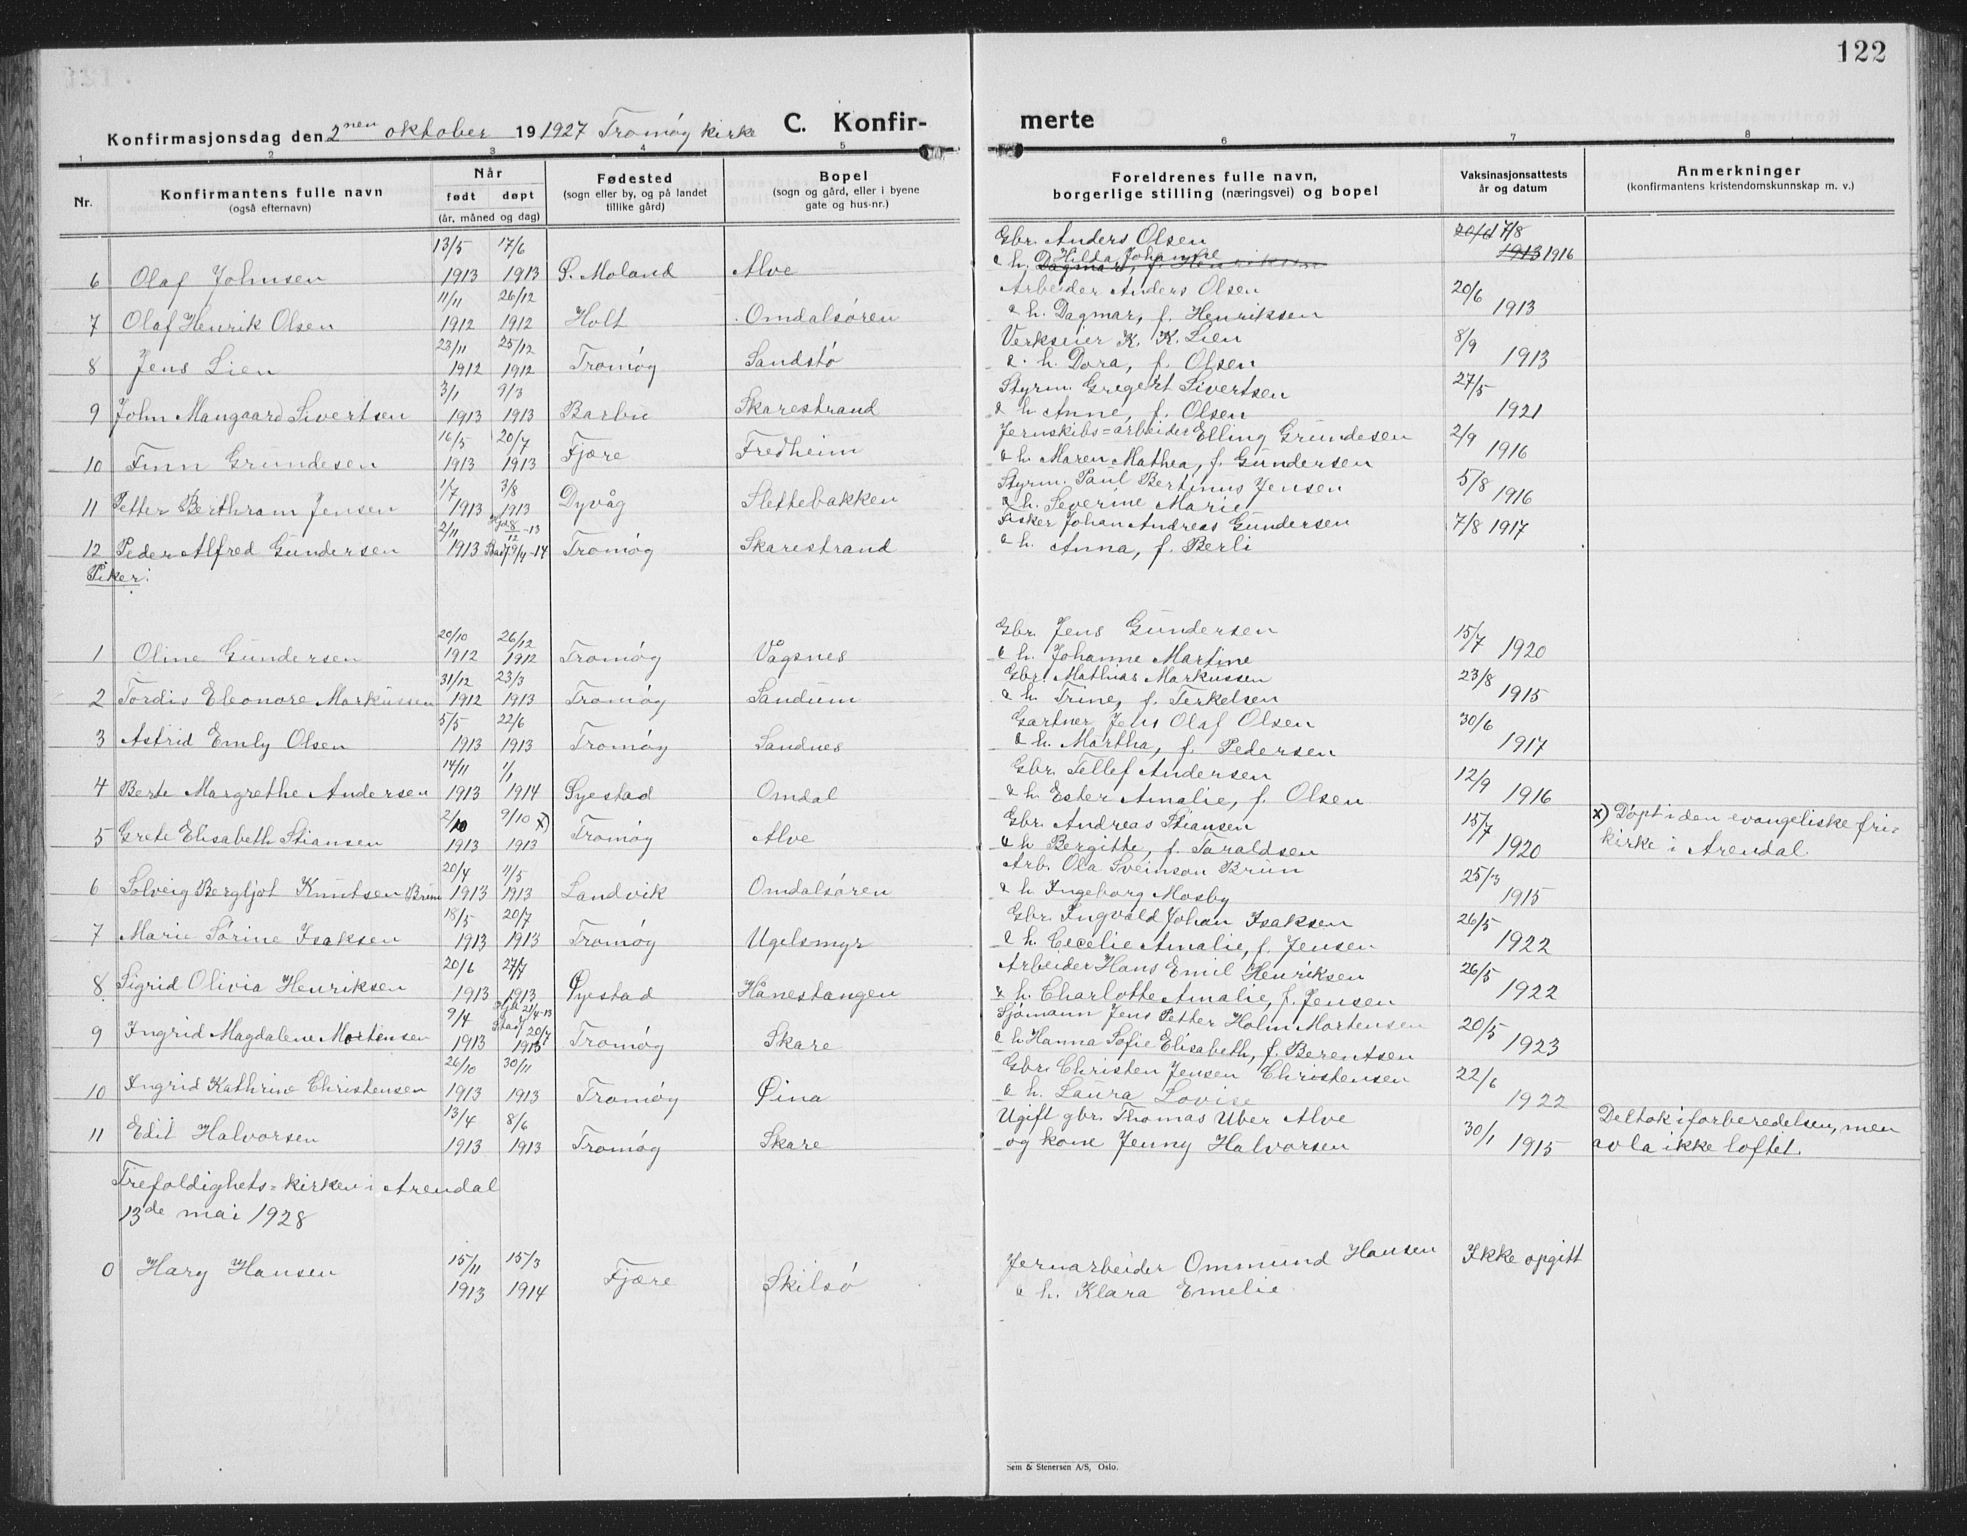 122
Konfirmasjonsdag den 2nen oktober 19 1927 Tromøy kirke C. Konfir- merte
1 2 3 4 5 6 7 8
Nr. Konfirmantens fulle navn (også efternavn) Når født døpt (år, måned og dag) Fødested (sogn eller by, og på landet tillike gård) Bopel (sogn og gård, eller i byene gate og hus-nr.) Foreldrenes fulle navn, borgerlige stilling (næringsvei) og bopel Vaksinasjonsattests år og datum Anmerkninger (konfirmantens kristendomskunnskap m. v.)
13/5 17/6 Gbr. Anders Olsen 20/6 7/8
6 Olaf Johnsen 1913 1913 Ö. Moland Alve & h. Hilda Johanne Dagmar, f. Henriksen 1913 1916
11/11 26/12 Arbeider Anders Olsen 20/6
7 Olaf Henrik Olsen 1912 1912 Holt Omdalsören & h. Dagmar, f. Henriksen 1913
23/11 25/12 Verkseier K. K. Lien 8/9
8 Jens Lien 1912 1912 Tromøy Sandstø & h. Dora, f. Olsen 1913
3/1 9/3 Styrm. Gregert Sivertsen 27/5
9 John Mangaard Sivertsen 1913 1913 Barbu Skarestrand & h. Anne, f. Olsen 1921
16/5 20/7 Jernskibs=arbeider Elling Grundesen 2/9
10 Finn Grundesen 1913 1913 Fjære Fredheim & h. Maren Mathea, f. Gundersen 1916
1/7 3/8 Styrm. Paul Bertinus Jensen 5/8
11 Petter Berthram Jensen 1913 1913 Dyvåg Slettebakken & h. Severine Marie 1916
2/11 Hjd. 8/12-13 Fisker Johan Andreas Gundersen 7/8 1917
12 Peder Alfred Gundersen 1913 Stadf 19/4-14 Tromøy Skarestrand & h. Anna, f. Berli
Piker:
20/10 26/12 Gbr. Jens Gundersen 15/7
1 Oline Gundersen 1912 1912 Tromøy Vågsnes & h. Johanne Martine 1920
31/12 23/3 Gbr. Mathias Markussen 23/8
2 Tordis Eleonore Markussen 1912 1913 Tromøy Sandum & h. Trine, f. Terkelsen 1915
5/5 22/6 Gartner Jens Olaf Olsen 30/6
3 Astrid Emly Olsen 1913 1913 Tromøy Sandnes & h. Martha, f. Pedersen 1917
14/11 1/1 Gbr. Tellef Andersen 12/9
4 Berte Margrethe Andersen 1913 1914 Øyestad Omdal & h. Ester Amalie, f. Olsen 1916
2/10 9/10 x) Gbr. Andreas Stiansen 15/7 x) Døpt i den evangeliske fri-
5 Grete Elisabeth Stiansen 1913 1913 Tromøy Alve & h Bergitte, f. Taraldsen 1920 kirke i Arendal.
20/4 11/5 Arb. Ola Sveinson Brun 25/3
6 Solveig Bergljot Knutsen Brun 1913 1913 Landvik Omdalsören & h Ingeborg Mosby 1915
18/5 20/7 Gbr. Ingvald Johan Isaksen 26/5
7 Marie Sørine Isaksen 1913 1913 Tromøy Ugelsmyr & h. Cecelie Amalie, f. Jensen 1922
20/6 27/7 Arbeider Hans Emil Henriksen 26/5
8 Sigrid Olivia Henriksen 1913 1913 Øyestad Hånestangen & h. Charlotte Amalie, f. Jensen 1922
9/4 Hjd. 21/4-13 Sjømann Jens Petter Holm Mortensen 20/5
9 Ingrid Magdalene Mortensen 1913 Stadf 20/7 1913 Tromøy Skare & h. Hanna Sofie Elisabeth, f. Berentsen 1923
26/10 30/11 Gbr. Christen Jensen Christensen 22/6
10 Ingrid Kathrine Christensen 1913 1913 Tromøy Øina & h. Laura Lovise 1922
13/4 8/6 Ugift gbr. Thomas Uber Alve 30/1 Deltok i forberedelsen, men
11 Edit Halvorsen 1913 1913 Tromøy Skare og kone Jenny Halvorsen 1915 avla ikke løftet.
Trefoldighets=kirken i Arendal
13de mai 1928
15/11 15/3 Jernarbeider Ommund Hansen Ikke opgitt
0 Hary Hansen 1913 1914 Fjære Skilsø & h. Klara Emelie
Sem & Stenersen A/S, Oslo.